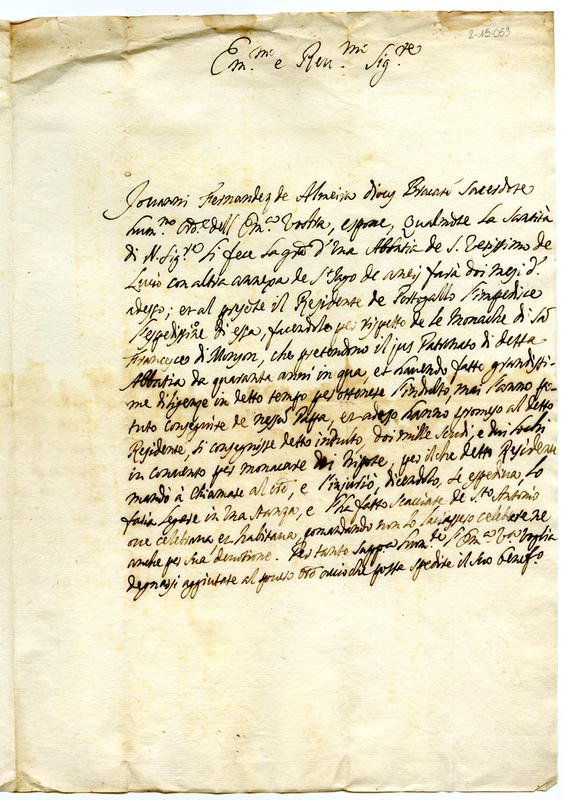 2-15-059
Em.mo e Reu.mo Sig.re
Jouanni Fernandez de Almeira dioces Bracare Sacerdote
hum.mo Or.e dell' Em.a Vostra, espone, qualmente la Santità
di N. Sig.re li fece la gra d'una Abbatia de S. Verissimo de
con altra annexa de S.t Jago de faria doi mesi d.
adesso; et al presente il Residente de Portogallo l'impedice
l'espeditione di essa, facendolo per rispetto de le Monache di Sā
Francesco di Monzon, che pretendono il jus Patronato di detta
Abbatia da quaranta anni in qua, et hauendo fatte grandissi-
me diligenze in detto tempo per ottenere l'indulto, mai l'anno po-
tuto conseguire de Papa, et adesso hanno promesso al detto
Residente, si conseguisse detto indulto, doi mille scudi, e dui
in conuento per monacare dei Nipote, per il che detto Residente
mandò à chiamare al Orē, e l'injuriò, dicendole, se espediua, lo
faria legare in una stanza, e l'ha fatto scacciare de S.to Antonio
oue celebraua et habitaua, comandando non lo celebrare ne
anche per sua deuotione. Per tanto supp.ca hum.te l' Em.a V.ra voglia
degnarsi aggiutare al pouero Orē accioche possa spedire il suo benef.o